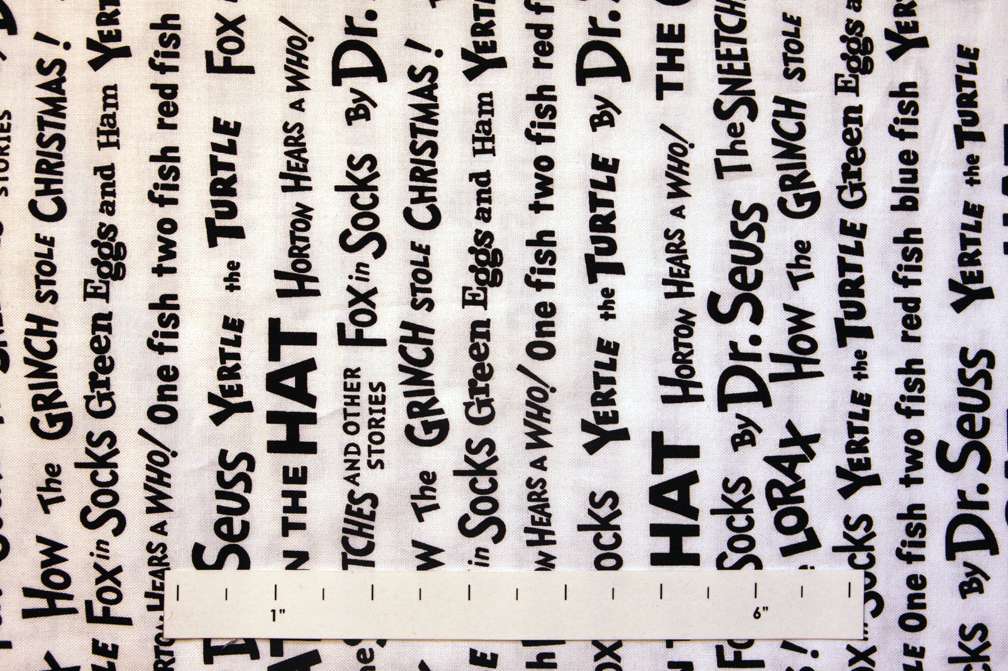 STORIES
How The GRINCH STOLE CHRISTMAS!
FOX in SOCKS Green Eggs and Ham
HEARS A WHO! One fish two fish red fish
SEUSS YERTLE the TURTLE FOX
THE HAT HORTON HEARS A WHO!
AND OTHER
STORIES
FOX in SOCKS By Dr.
The GRINCH STOLE CHRISTMAS!
in SOCKS Green Eggs and Ham
HEARS A WHO! One fish two fish red
YERTLE the TURTLE By Dr.
HAT HORTON HEARS A WHO! THE
SOCKS By Dr. SEUSS The SNEETCH
LORAX How The GRINCH STOLE
SOCKS YERTLE the TURTLE Green Eggs
One fish two fish red fish blue fish
By Dr. SEUSS YERTLE the TURTLE
1" 6"